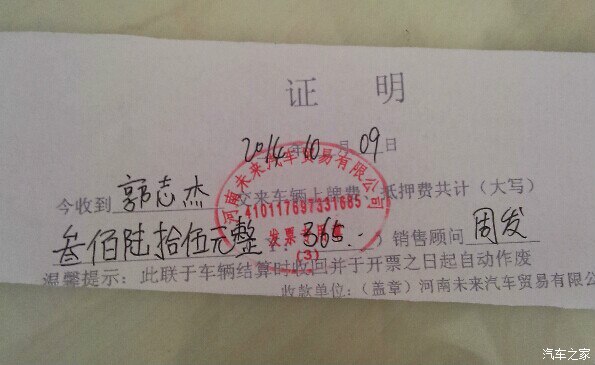 证 明
2014年10月09日
今收到 郭志杰 交来车辆上牌费、抵押费共计（大写）
叁佰陆拾伍元整 365 ）销售顾问 周发
温馨提示：此联于车辆结算时收回并于开票之日起自动作废
收款单位：（盖章）河南未来汽车贸易有限公
河南未来汽车贸易有限公司
410117697331685
发票专用章
（3）
汽车之家